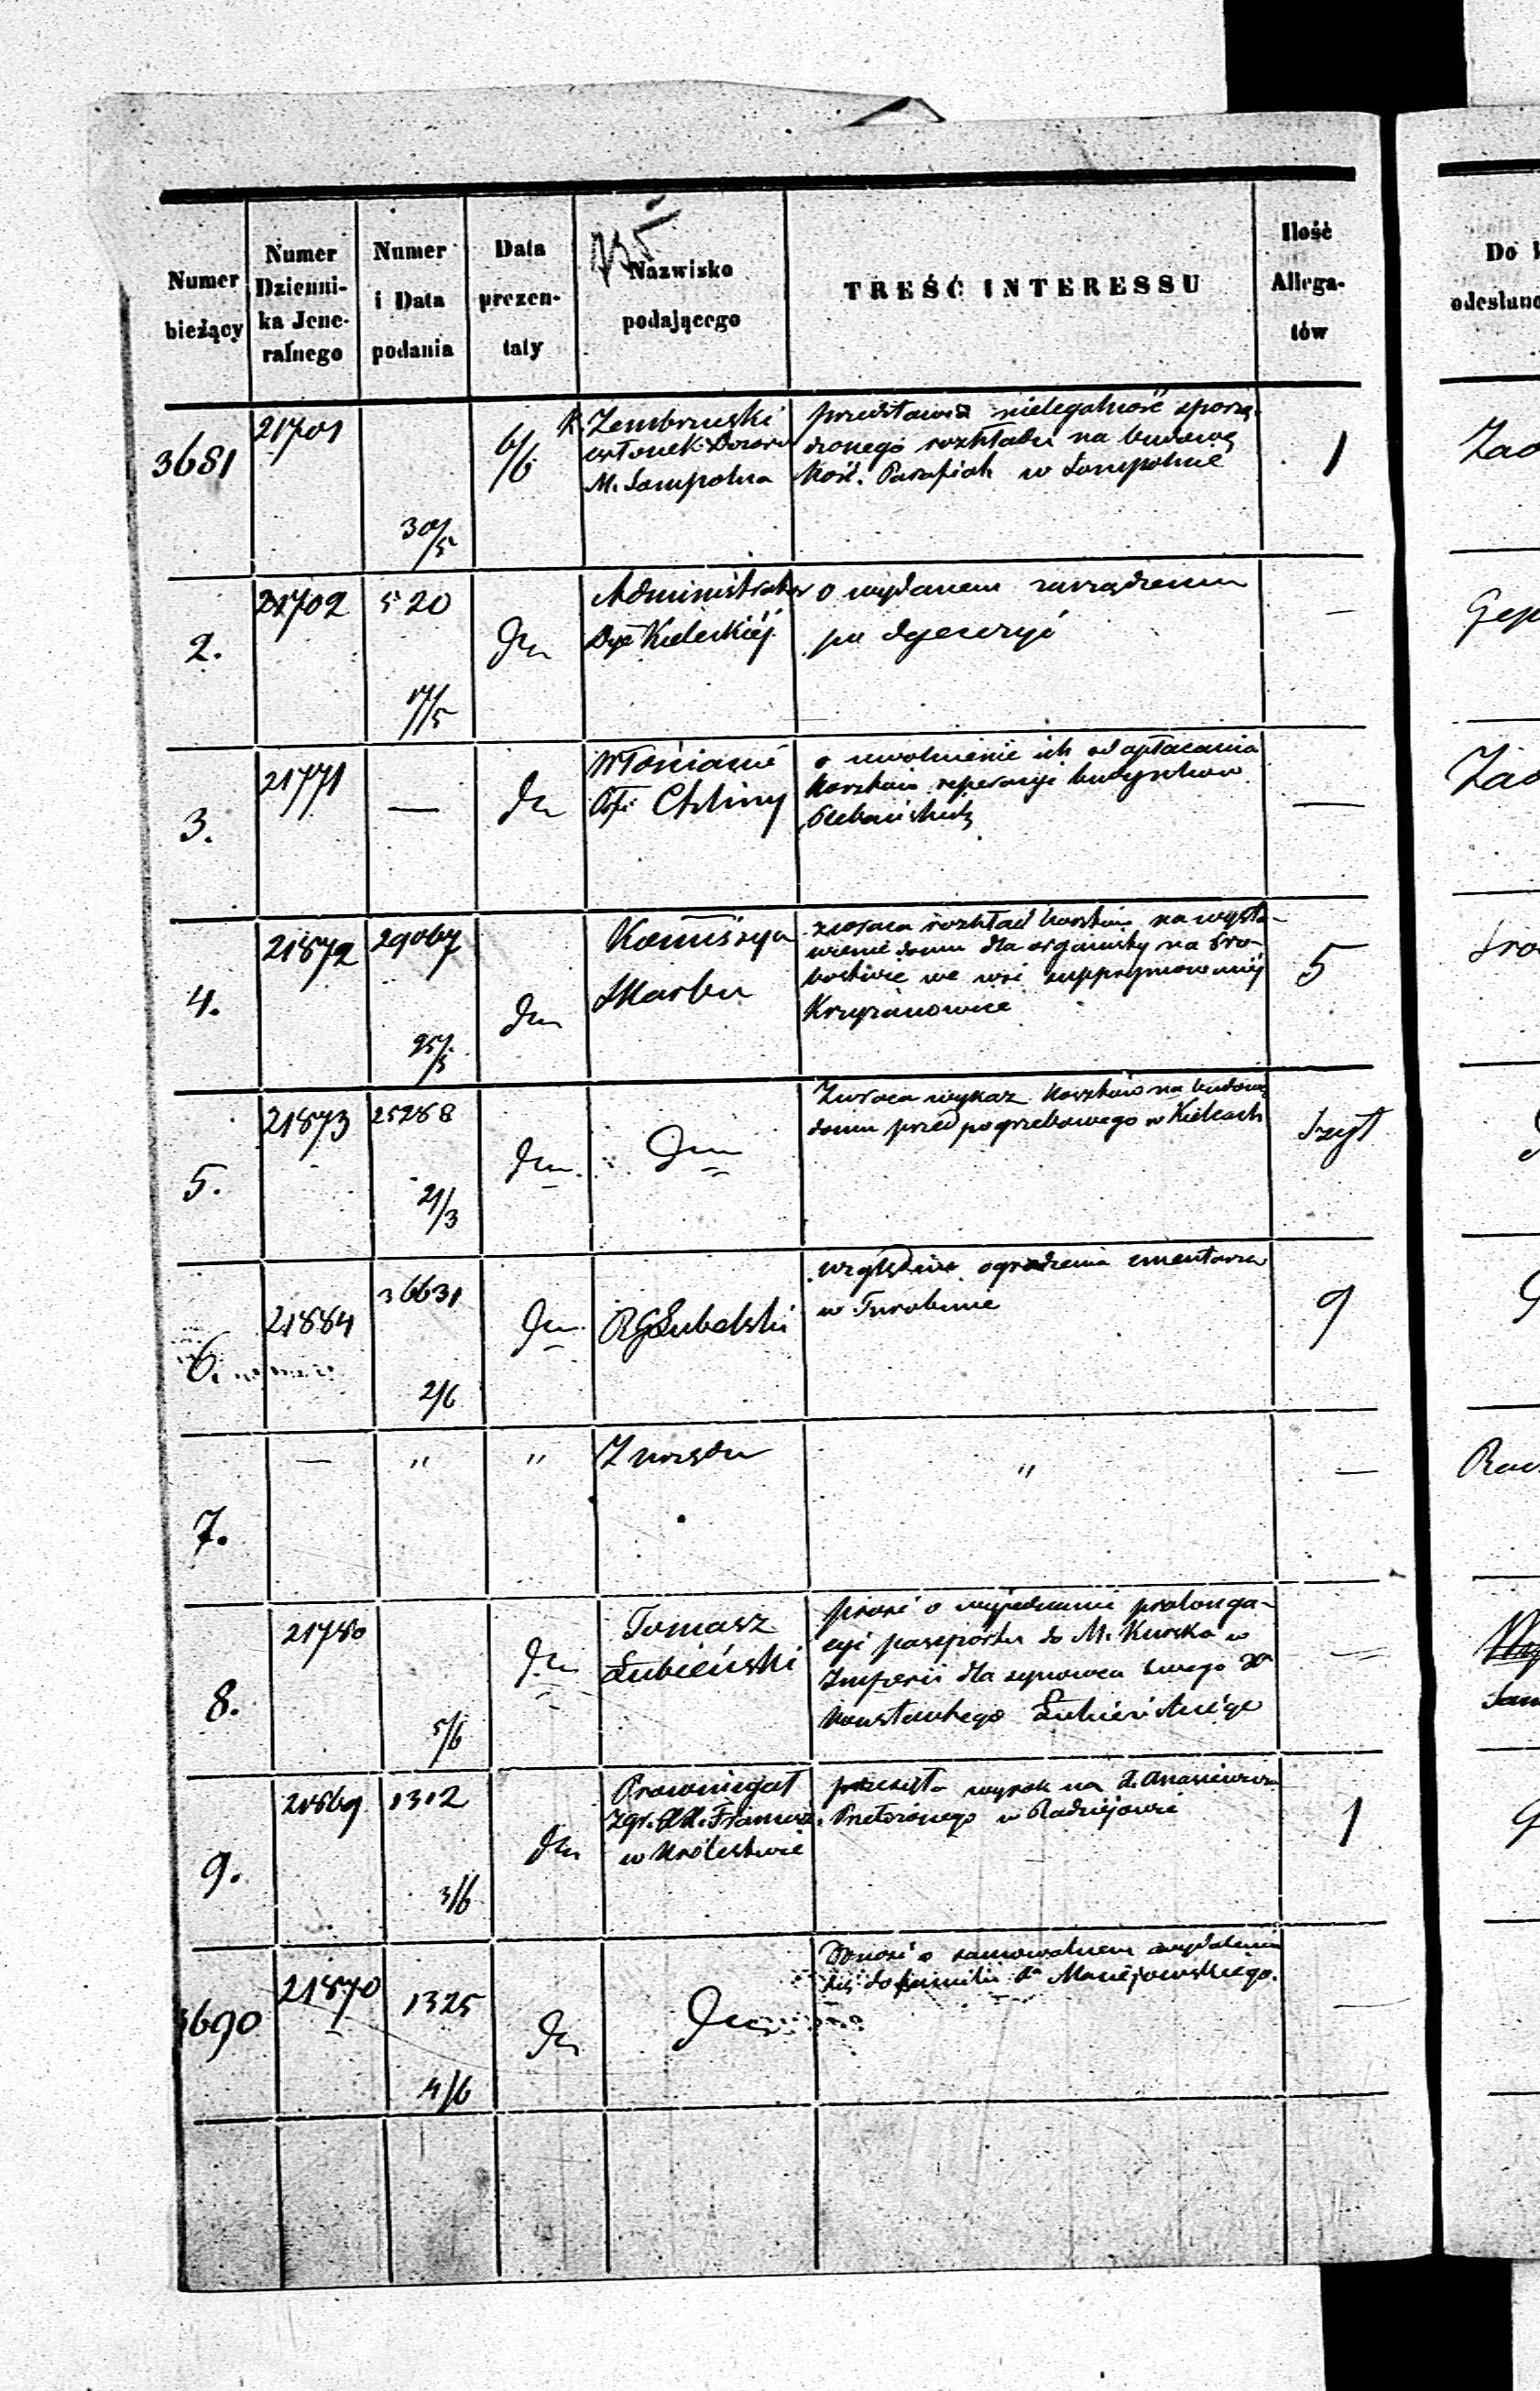 Numer bieżący
Numer Dzienni- ka Jene- ralnego
Numer i Data podania
Data prezen- taty
Nazwisko podającego
TREŚĆ INTERESSU
Ilość Allega- tów
Do
odesłano
3681
21701
30/5
6/6
Zembrzuski
członek Dozoru
M. Sompolna
przedstawia nielegalność sporzą-
dzonego rozkładu na budowę
Kość. Parafial. w Sompolnie
1
2.
21702
520
17/5
Administrator
Dyec Kieleckiéj
o wydanem zarządzeniu
po dyecezyi
—
3.
21771
—
Włościanie
Chliny
o uwolnienie ich od opłacania
kosztów reperacyi budynków
Plebańskich
—
4.
21872
29067
25/5
Kommissya
Skarbu
zwraca rozkład kosztów na wysta-
wienie domu dla organisty na Pro-
bostwie we wsi suppprymowanéj
Krzyżanowice
5
5.
21873
25288
2/3
Zwraca wykaz kosztów na budowę
domu przedpogrzebowego w Kielcach
Szyt
6.
21884
36631
2/6
RGLubelski
względem ogrodzenia cmentarza
w Turobinie
9
7.
—
"
"
Z urzędu
"
—
8.
21780
5/6
Tomasz
Łubieński
prosi o wyjednanie prolonga-
cyi paszportu do M. Kurska w
Imperii dla synowca swego
Konstantego Łubieńskiégo
9.
21869
1312
3/6
Prowincyał
Zgr. Francisz.
w Królestwie
przesyła wyrok na
w Radziejowie
1
3690
21870
1325
4/6
Donosi o samowolnem wydaleniu
się do familii Maciejowskiego.
—